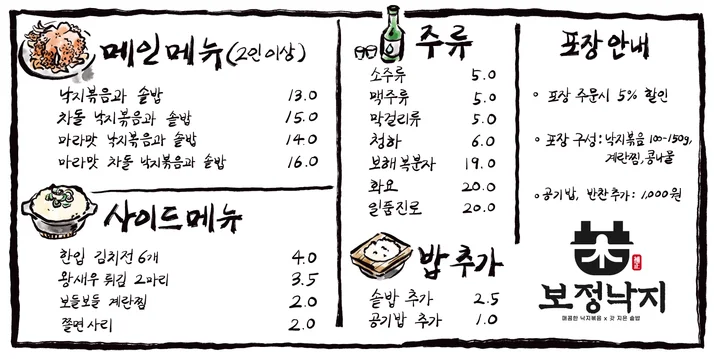 메인메뉴(2인이상)
낙지볶음과 솥밥 13.0
차돌 낙지볶음과 솥밥 15.0
마라맛 낙지볶음과 솥밥 14.0
마라맛 차돌 낙지볶음과 솥밥 16.0
사이드메뉴
한입 김치전 6개 4.0
왕새우 튀김 2마리 3.5
보들보들 계란찜 2.0
쫄면사리 2.0
주류
소주류 5.0
맥주류 5.0
막걸리류 5.0
청하 6.0
보해복분자 19.0
화요 20.0
일품진로 20.0
밥추가
솥밥 추가 2.5
공기밥 추가 1.0
포장안내
포장 주문시 5% 할인
포장 구성: 낙지볶음 100-150g,
계란찜, 콩나물
공기밥, 반찬추가: 1,000원
보정낙지
매콤한 낙지볶음 x 갓 지은 솥밥